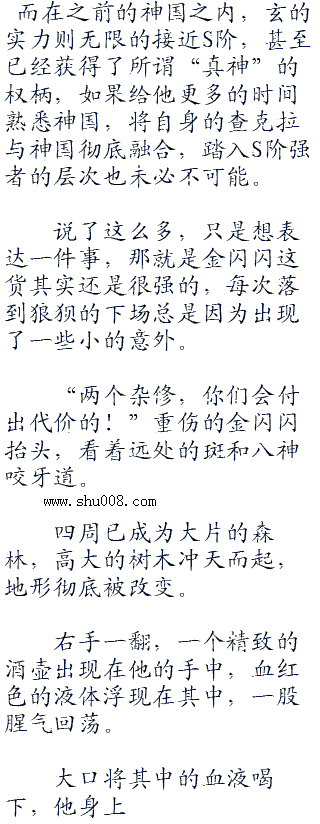 而在之前的神国之内，玄的
实力则无限的接近S阶，甚至
已经获得了所谓“真神”的
权柄，如果给他更多的时间
熟悉神国，将自身的查克拉
与神国彻底融合，踏入S阶强
者的层次也未必不可能。
说了这么多，只是想表
达一件事，那就是金闪闪这
货其实还是很强的，每次落
到狼狈的下场总是因为出现
了一些小的意外。
“两个杂修，你们会付
出代价的！”重伤的金闪闪
抬头，看着远处的斑和八神
咬牙道。
www.shu008.com
四周已成为大片的森
林，高大的树木冲天而起，
地形彻底被改变。
右手一翻，一个精致的
酒壶出现在他的手中，血红
色的液体浮现在其中，一股
腥气回荡。
大口将其中的血液喝
下，他身上